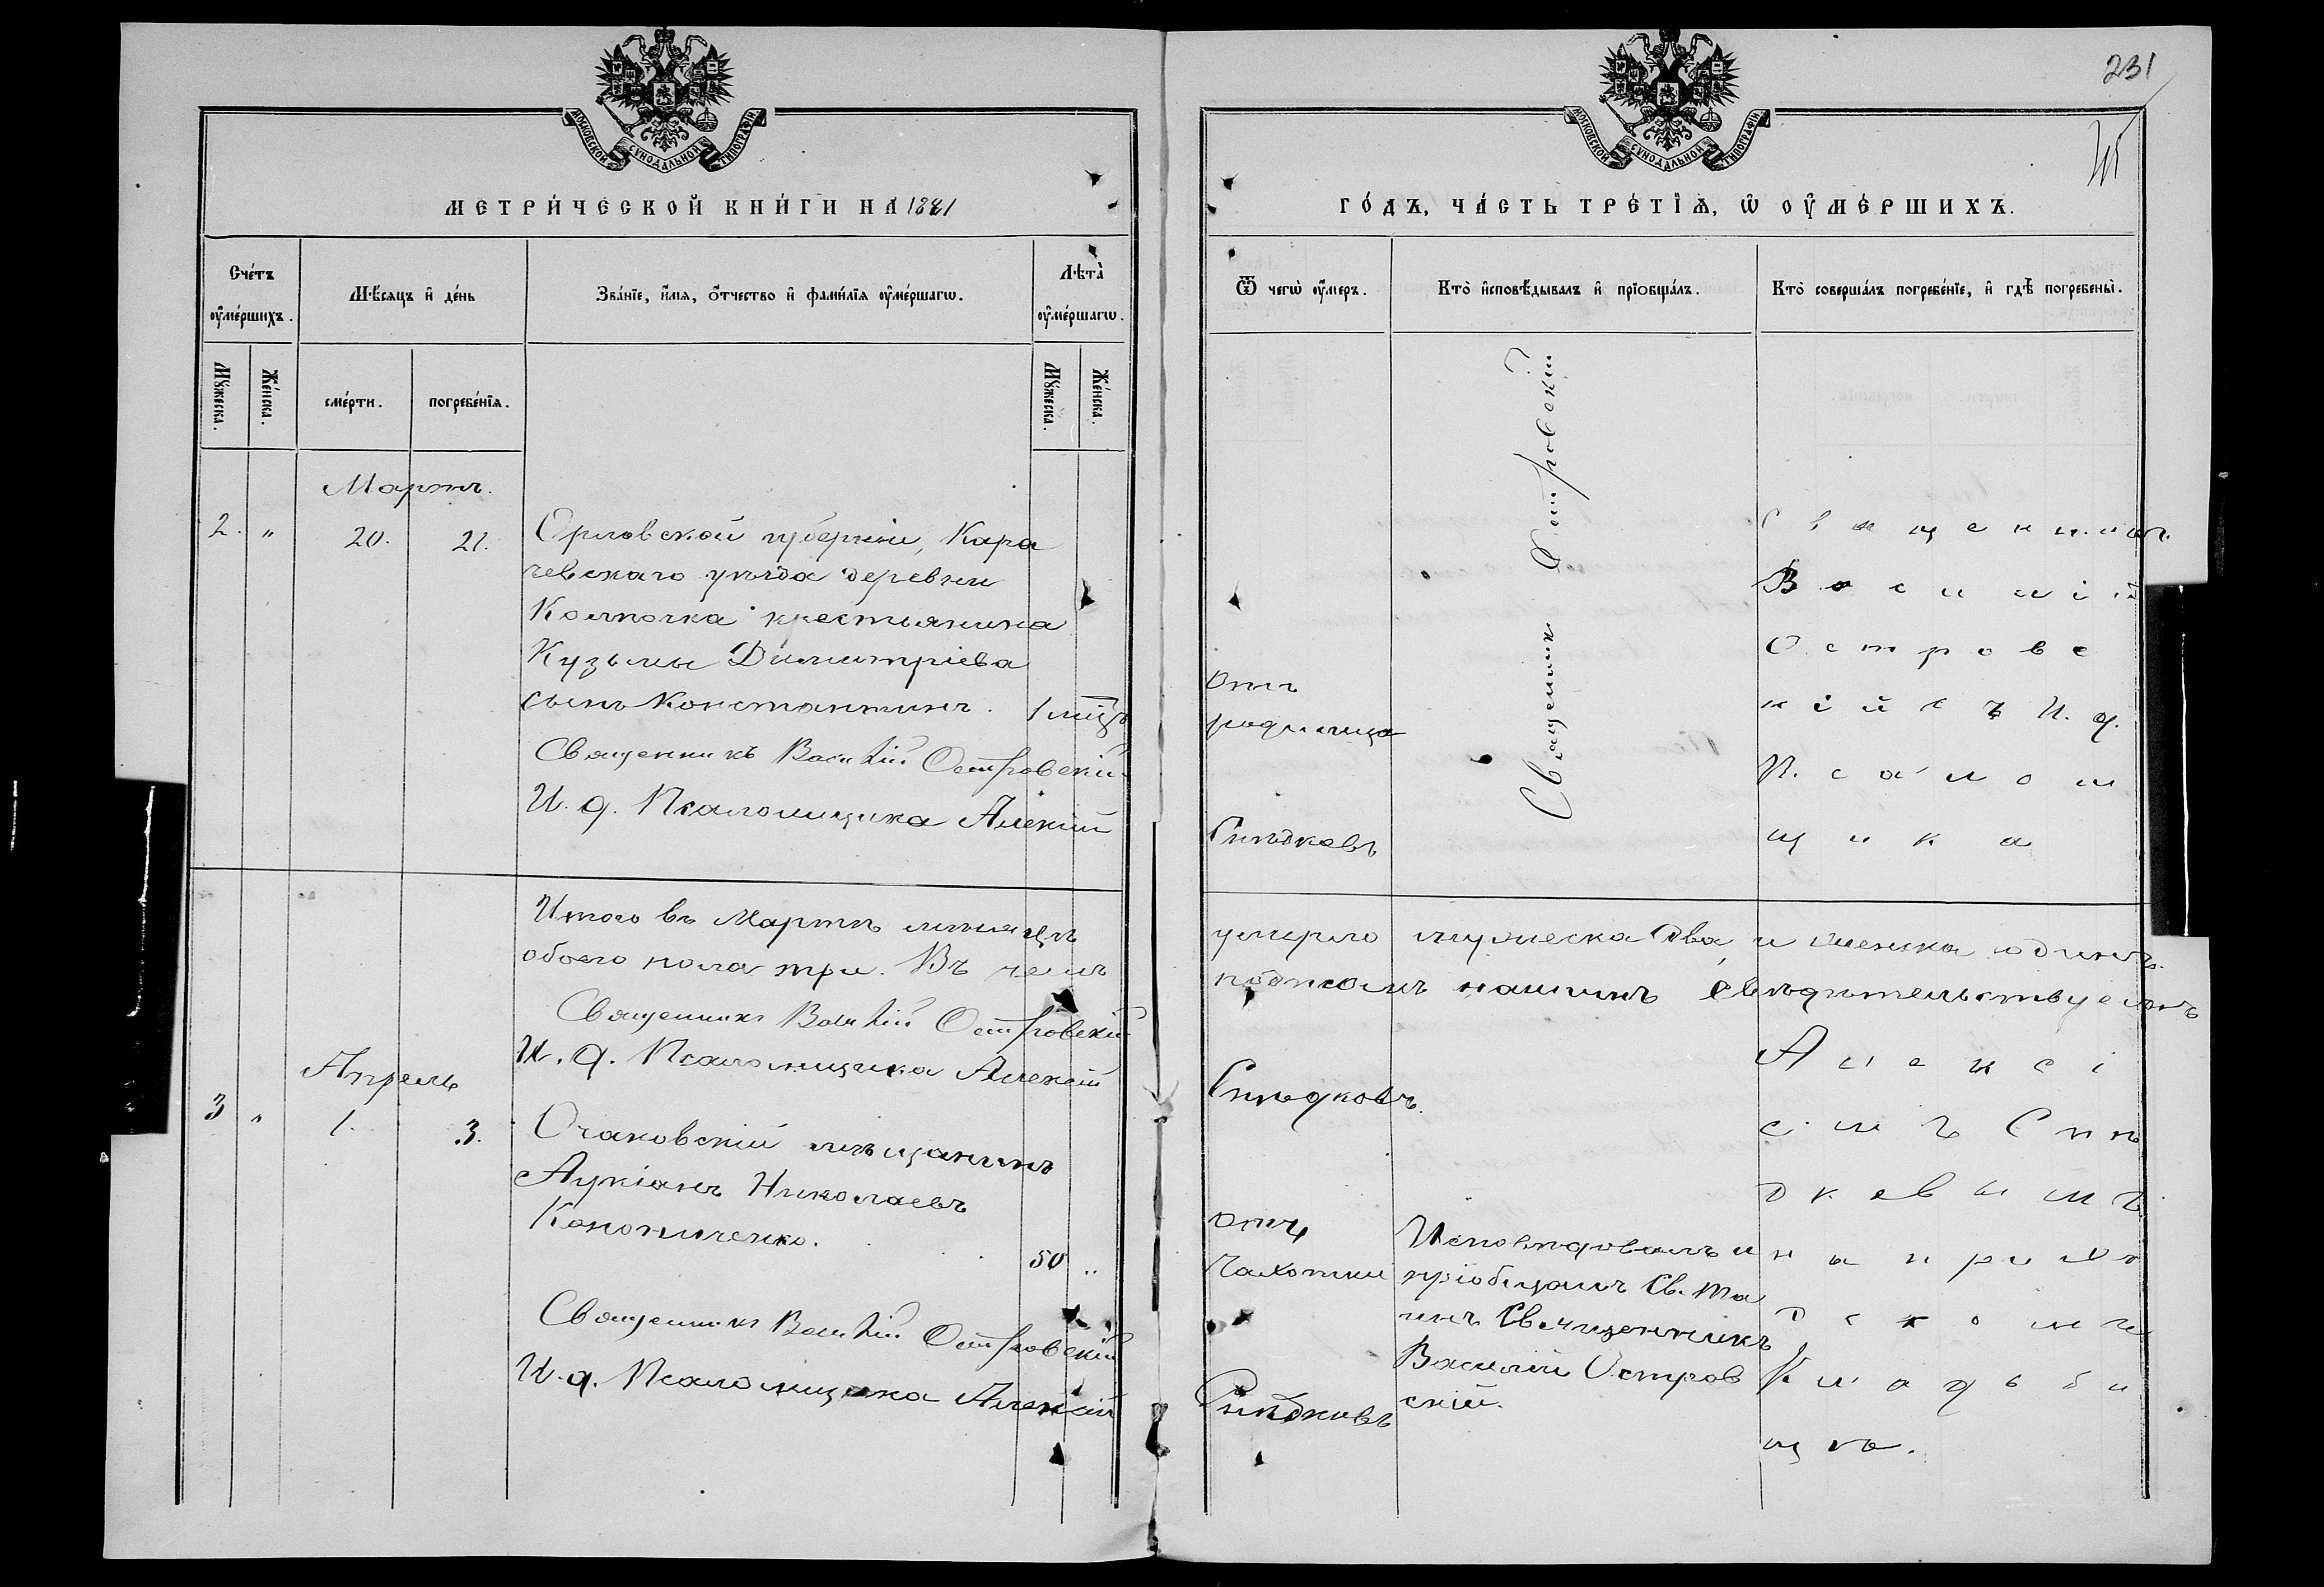 231
МОСКОВСКОЙ СѴНОДАЛЬНОЙ ТИПОГРАФІИ
МЕТРИ́ЧЕСКОЙ КНИ́ГИ НА 1881
Сче́тъ ᲂу҆ме́ршихъ.
Мѣ́сяцъ и҆ де́нь
Зва́нїе, и҆́мѧ, ѻ҆́тчество и҆ фами́лїѧ ᲂу҆ме́ршагѡ.
Лѣта̀ ᲂу҆ме́ршагѡ.
Мꙋ́жеска.
Же́нска.
сме́рти.
погребе́нїѧ.
Мꙋ́жеска.
Же́нска.
Мартъ.
2. " 20. 21.
Орловской губерніи, Кара
чевскаго уѣзда деревни
крестьянина
Кузьмы Димитріева
сынъ Константинъ. 1 мц҃ъ
Священникъ Василій Островскій
И. д. Псаломщика Алексій
Итого въ Мартѣ мѣсяцѣ
обоего пола три. Въ чемъ
Священникъ Василій Островскій
И. д. Псаломщика Алексій
Апрель
3 " 1. 3.
Очаковскій мѣщанинъ
Лукіанъ Николаевъ
Кононученко. 50 "
Священникъ Василій Островскій
И. д. Псаломщика Алексій
МОСКОВСКОЙ СѴНОДАЛЬНОЙ ТИПОГРАФІИ
ГО́ДЪ, ЧА́СТЬ ТРЕ́ТЇѦ, Ѡ҆ ОУ҆МЕ́РШИХЪ.
Ѿ чегѡ̀ ᲂу҆́меръ.
Кто̀ и҆сповѣ́дывалъ и҆ прїѡбща́лъ.
Кто̀ соверша́лъ погребе́нїе, и҆ гдѣ̀ погребены̀.
отъ
родимца
Священникъ Островскій
Священникъ
Василій
Островс
кій съ И. д.
Псалом
щика
умерло мужеска два, и женска одинъ.
подписомъ нашимъ свѣдѣтельствуемъ
Алексі
емъ
на прихо
дскомъ
Кладби
щѣ.
отъ
чахотки
Исповѣдовалъ и
пріобщалъ Св. Та
инъ Священникъ
Василій Остров
скій.